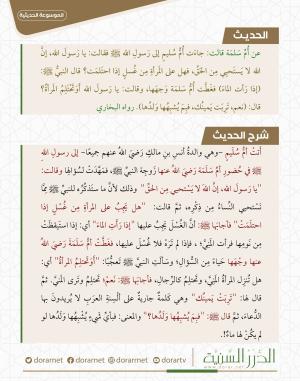 الموسوعة الحديثية
الحديث
عن أُمِّ سَلَمَةَ قالت: جاءت أُمُّ سُلَيمٍ إلى رسولِ اللهِ ﷺ فقالت: يا رسولَ اللهِ، إنَّ
اللهَ لا يَستحيي مِن الحَقِّ، فهل على المرأةِ مِن غُسلٍ إذا احتَلَمَتْ؟ قال النبيُّ ﷺ:
(إذا رأتِ الماءَ) فغطَّت أُمُّ سَلَمةَ وَجهَها، وقالت: يا رسولَ اللهِ أوَتَحتَلِمُ المرأةُ؟
قال: (نعم، تَرِبَت يَمينُكِ، فبِمَ يُشبِهُها وَلَدُها). رواه البخاري
شرح الحديث
أتتْ أُمُّ سُلَيمٍ -وهي والدةُ أنسِ بنِ مالكٍ رَضِيَ اللهُ عنهم جميعًا- إلى رسولِ اللهِ
ﷺ في حُضورِ أُمِّ سَلَمةَ رَضِيَ اللهُ عنها زوجةِ النبيِّ ﷺ، فمَهَّدَتْ لسُؤالِها وقالت:
"يا رسولَ الله، إنَّ اللهَ لا يَستحيي مِن الحق" وذلك لأنَّ ما ستَذكُرُه للنبيِّ ﷺ ممَّا
تَستحيي النِّساءُ مِن ذِكرِه، ثمَّ قالت: "هل يَجِبُ على المرأةِ مِن غُسلٍ إذا
احتَلَمَت" فأجابَها ﷺ: أنَّ الغُسلَ يَجِبُ عليها "إذا رأتِ الماءَ" أي: إذا استيقَظَتْ
مِن نَومِها فرأت المَنيَّ، فإذا لم تَرَهُ فلا غُسلَ عليها، فغطَّت أُمُّ سَلَمةَ رَضِيَ اللهُ
عنها وجْهَها حَياءً مِن ﷺ، وسألَتِ النبيَّ ﷺ تعجُّبًا: "أوَتَحتَلِمُ المرأةُ" أي:
هل تُنزِلُ المرأةُ المَنيَّ، وتَحتلِمُ كالرِّجالِ، فأجابها ﷺ: نَعَمْ؛ تَحتلِمُ وتَرى المَنيَّ. ثمَّ
قال لها: "تَرِبَتْ يَمينُكِ" وهي كَلِمةٌ جاريةٌ على ألسِنةِ العربِ لا يُريدونَ بها
الدُّعاءَ، ثمَّ قال ﷺ: "فبِمَ يُشبِهُها وَلَدُها؟" والمعنى: فبأيِّ شيءٍ يُشبِهُها وَلَدُها لو
لم يكُنْ لها ماءٌ!.
الدُّرَرُ السَّنِيَّة
www.dorar.net
dorarnet
dorarnet
dorarnet
dorartv